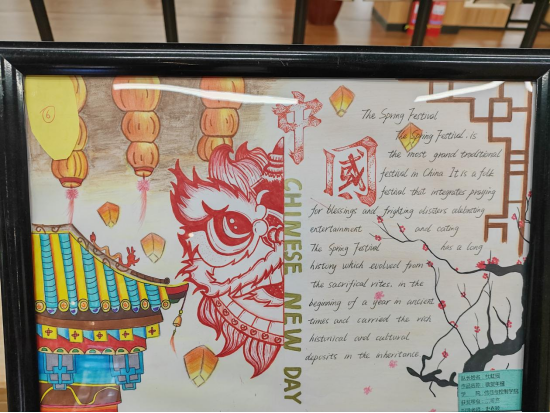 4
中
國
CHINESE NEW DAY
The Spring Festival
The Spring Festival is
the most grand traditional
festival in China. It is a folk
festival that integrates praying
for blessings and
entertainment and eating
The Spring Festival has a long
history which evolved from
the sacrifical rites. in the
beginning of a year in ancient
times and carried the rich
historical and cultural
deposits in the inheritance